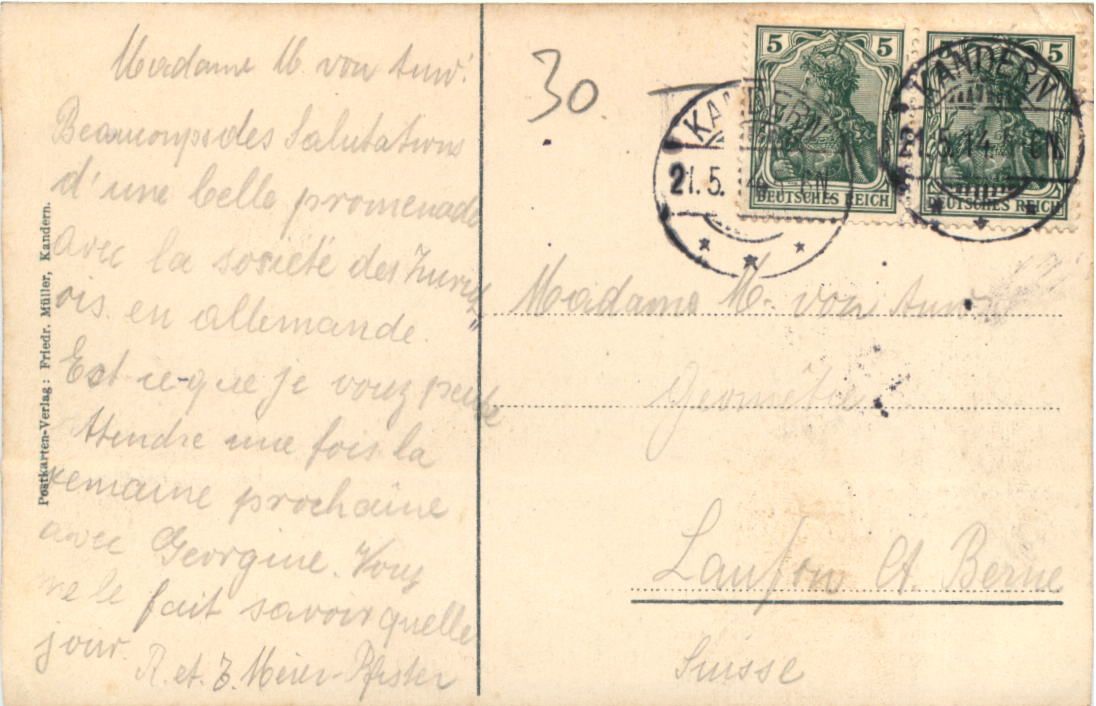 Madame M. von Auw.
Beaucoups des Salutations
d'une belle promenade
avec la société des Zurich
ois en allemande.
Est ce-que je vouz peut
Attendre une fois la
semaine prochaine
avec Georgine. Vouz
me le fait savoir quelle
jour.
R. et. J. Meier-Pfister
Postkarten-Verlag: Friedr. Müller, Kandern.
30.
5 5
DEUTSCHES REICH
5
DEUTSCHES REICH
KANDERN
21.5.
KANDERN
21.5.14.
Madame M. von Auw.
Géomètre
Laufon Ct. Berne
Suisse